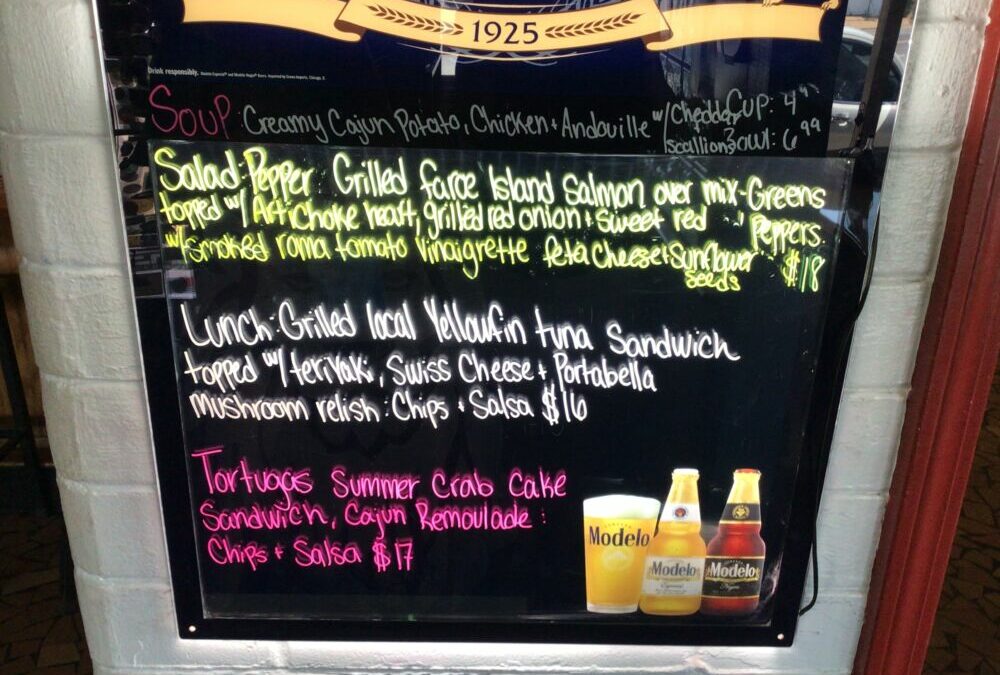 1925
Drink responsibly.
Soup: Creamy Cajun Potato, Chicken + Andouille w/ Cheddar Cup: 4.99
+ /scallions Bowl: 6.99
Salad: Pepper Grilled Faroe Island Salmon over mix-Greens
topped w/ Artichoke heart, grilled red onion + sweet red Peppers
w/ smoked roma tomato Vinaigrette feta Cheese + Sunflower
Seeds $18
Lunch: Grilled local Yellowfin tuna Sandwich
topped w/ teriyaki, Swiss Cheese + Portabella
mushroom relish: Chips + Salsa $16
Tortugas Summer Crab Cake
Sandwich, Cajun Remoulade:
Chips + Salsa $17
Modelo
Modelo
Modelo